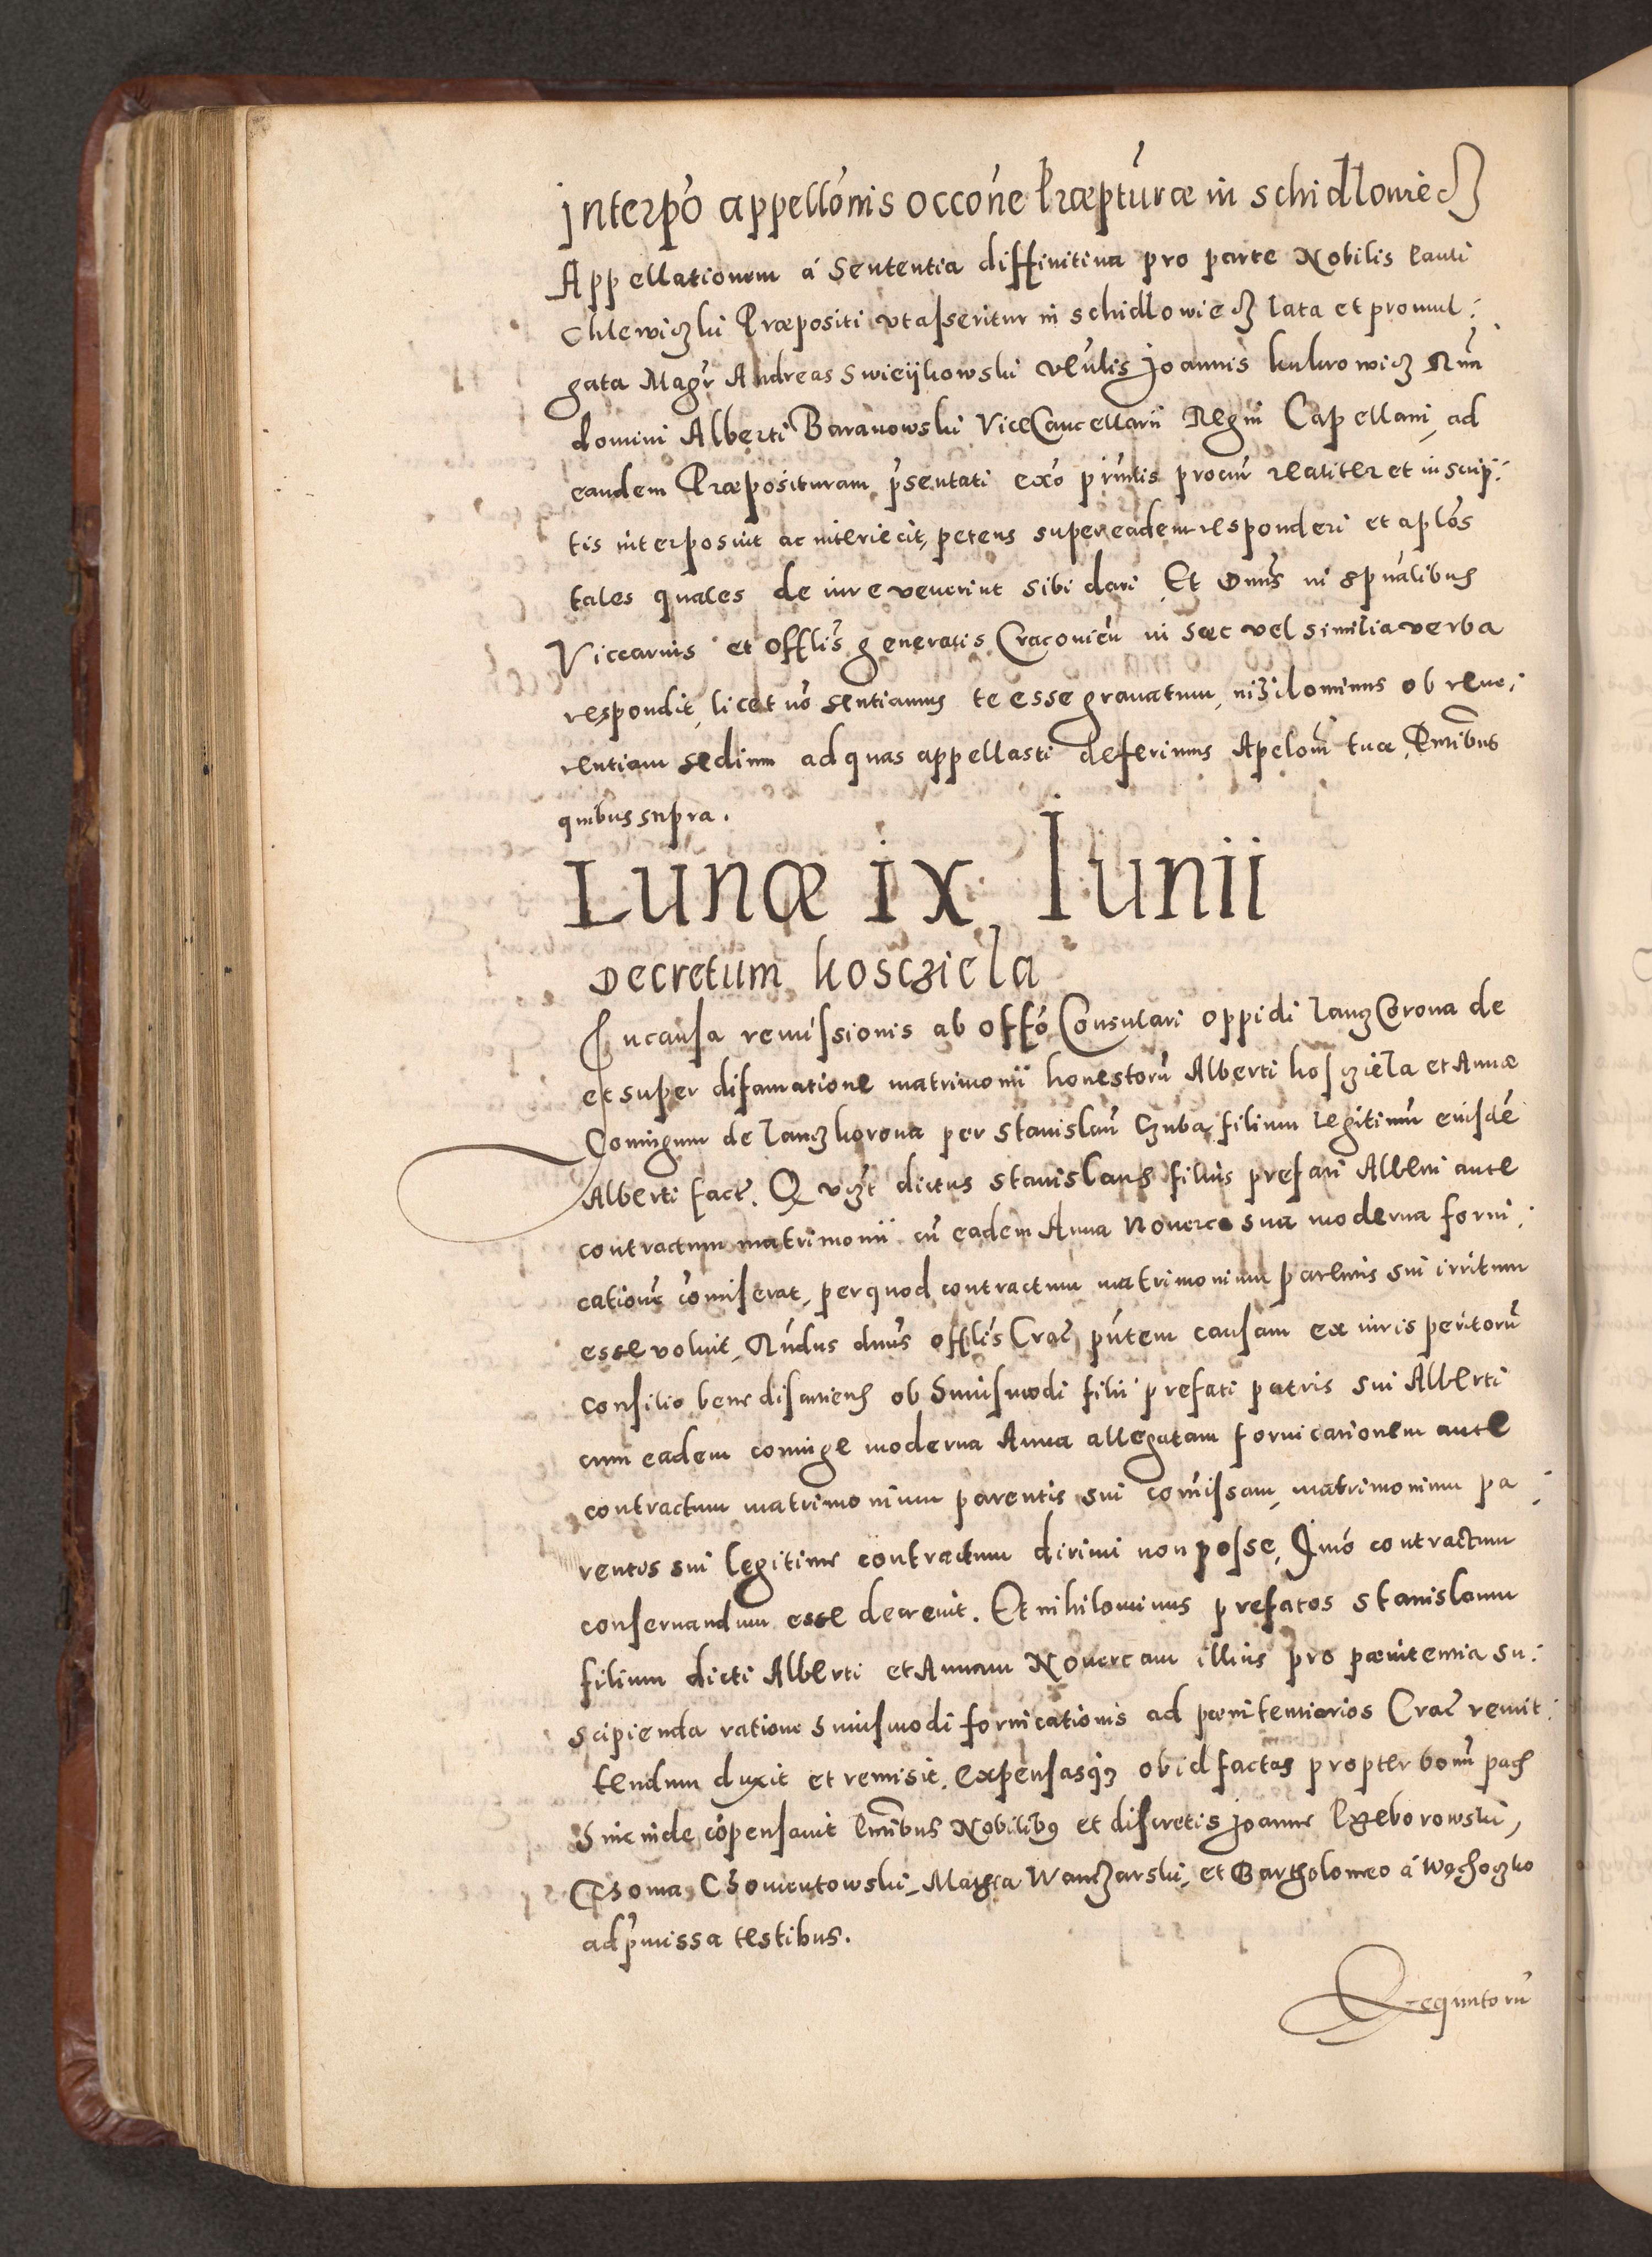 Interpo͂ appello͂nis occo͂ne Præptu͂ræ in Schidlowiecz
Appellationem á Sententia diffinitiua pro parte Nobilis Pauli
Chlewiczki Præpositi vt asseritur in Schidlowiecz lata et promul:
gata Magr͂ Andreas Swieÿkowski ve͂ulis Joannis kukrowicz Rn͂i
domini Alberti Baranowski ViceCancellarii Regni Capellani, ad
eandem Præposituram p͂sentati exo͂ prin͂tis procur͂ realiter et in scrip:
tis interposuit ac interiecit, petens super eadem responderi et aplo͂s
tales quales de iure venerint sibi dari Et Dnu͂s in spu͂alibus
Viccarius et Offlis͂ generalis Cracouien͂ in hæc vel similia verba
respondit, licet no͂ sentiamus te esse grauatum, nihilominus ob reue:
rentiam sedium ad quas appellasti deferimus Apelom͂ tuæ, Pn͂tibus
quibus supra.
Lunæ ix Iunii
Decretum kosczieła
In causa remissionis ab offo͂ Consulari oppidi lanczCorona de
et super difamatione matrimonii honestoru͂ Alberti kosczieła et Annæ
Coniugum de lanczkorona per Stanislau͂ Czuba filium legitimu͂ eiusde͂
Alberti fact͂. Q vczt dictus Stanislaus filius prefati Alberti ante
contractum matrimonii cu͂ eadem Anna Nouerca sua moderna forni:
catione͂ co͂miserat, per quod contractum matrimonium parentis sui irritum
esse voluit, Rn͂dus dnu͂s offlis͂ Crac͂ pn͂tem causam ex iuris peritoru͂
consilio bene disctiens ob huiusmodi filii prefati patris sui Alberti
cum eadem coniuge moderna Anna allegatam fornicationem ante
contractum matrimonium parentis sui co͂missam, matrimonium pa:
rentis sui legitime contractum dirimi non posse, Imo͂ contractum
conseruandum esse decreuit. Et nihilominus prefatos Stanislaum
filium dicti Alberti et Annam Nouercam illius pro pænitentia su:
scipienda ratione huiusmodi fornicationis ad pænitentiarios Crac͂ remit:
tendum duxit et remisit, expensasqz ob id factas propter bonu͂ pacis
hinc inde co͂pensauit Pn͂tibus Nobilibus et discretis Joanne Przeborowski,
Thoma Chomentowski, Mathia Wanczarski, et Bartholomeo á Wąchoczko
ad p͂missa testibus.
Sequntoru͂